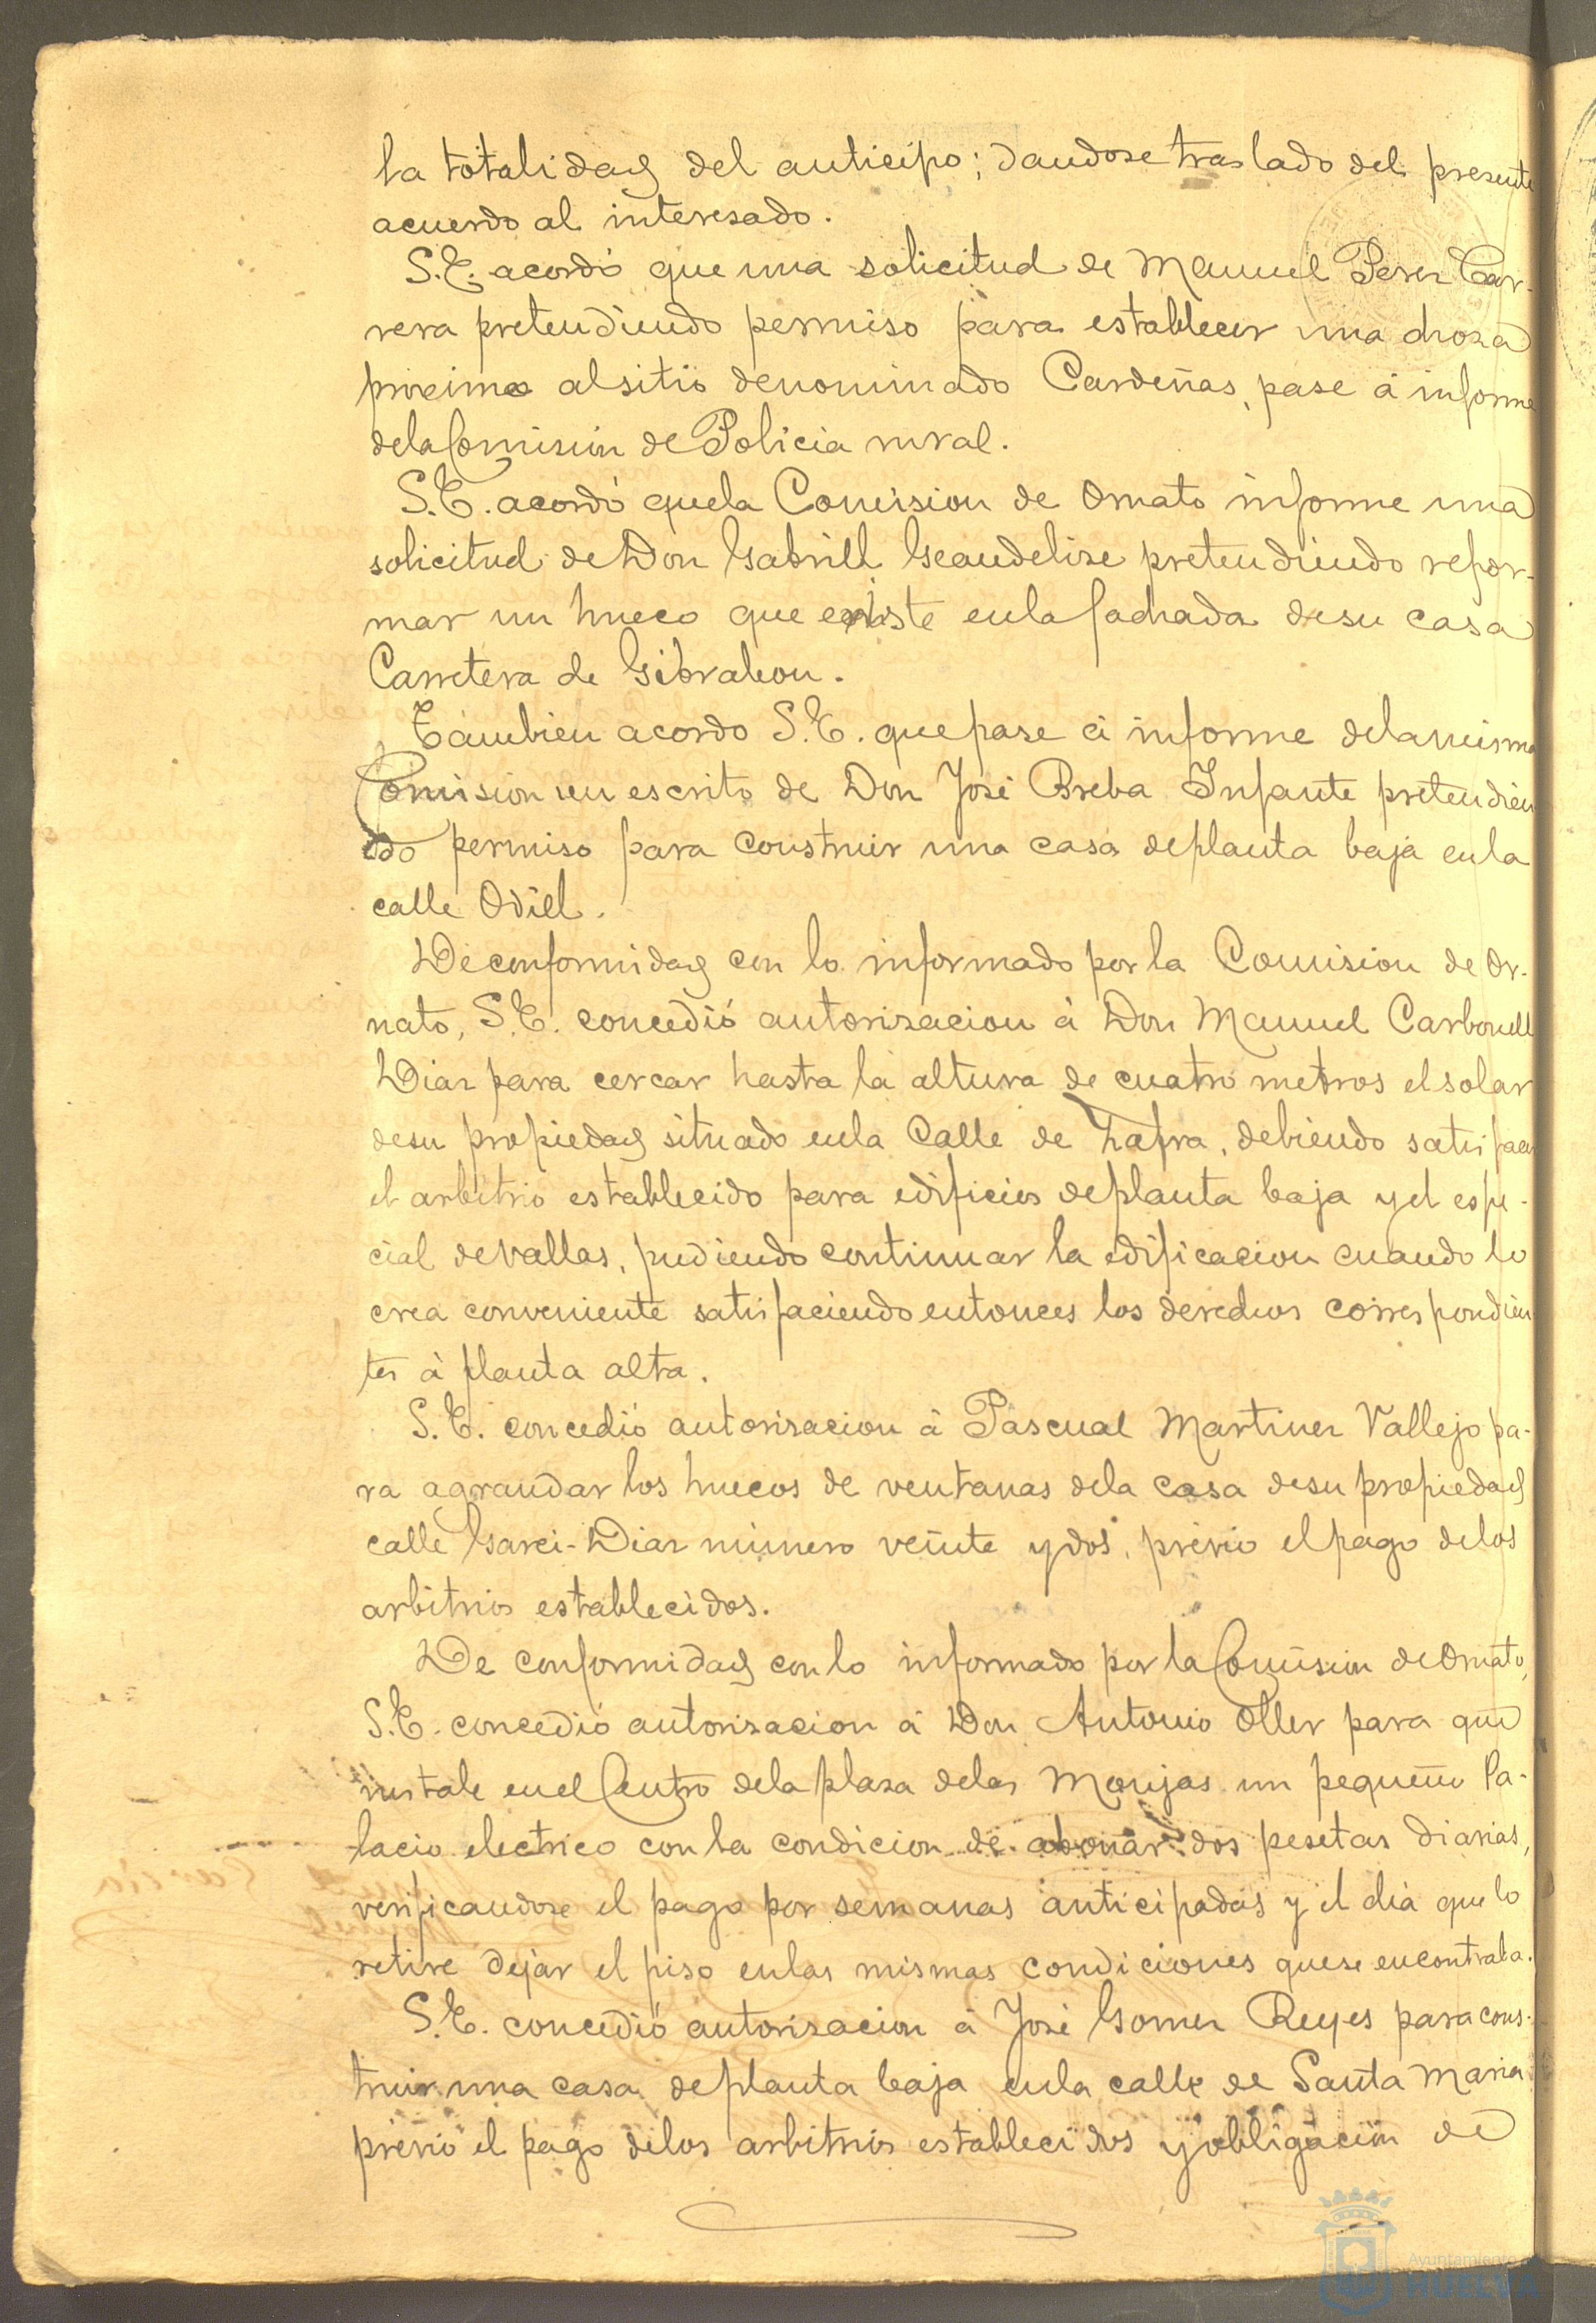 la totalidad del anticipo; dandose traslado del presente
acuerdo al interesado.
S.E. acordó que una solicitud de Manuel Perez Car-
rera pretendiendo permiso para establecer una choza
proximo al sitio denominado Cardeñas, pase á informe
de la Comision de Policia rural.
S.E. acordó que la Comision de Ornato informe una
solicitud de Don Gabriel Geaudelise pretendiendo refor-
mar un hueco que existe en la fachada de su casa
Carretera de Gibraleon.
Tambien acordo S.E. que pase á informe de la misma
Comision un escrito de Don José Breba Infante pretendien
do permiso para construir una casa de planta baja en la
calle Odiel.
De conformidad con lo informado por la Comision de Or-
nato, S.E. concedió autorizacion á Don Manuel Carbonell
Diaz para cercar hasta la altura de cuatro metros el solar
de su propiedad situado en la Calle de Zafra, debiendo satisfacer
el arbitrio establecido para edificios de planta baja y el espe-
cial de vallas, pudiendo continuar la edificacion cuando lo
crea conveniente satisfaciendo entonces los derechos correspondien
tes á planta alta.
S.E. concedió autorizacion á Pascual Martinez Vallejo pa-
ra agrandar los huecos de ventanas de la casa de su propiedad
calle Garci-Diaz número veinte y dos, prévio el pago de los
arbitrios establecidos.
De conformidad con lo informado por la Comision de Ornato,
S.E. concedió autorizacion á Don Antonio Oller para que
instale en el Centro de la plaza de las Monjas un pequeño Pa-
lacio electrico con la condicion de abonar dos pesetas diarias,
verificandose el pago por semanas anticipadas y el dia que lo
retire dejar el piso en las mismas condiciones que se encontraba.
S.E. concedió autorizacion á José Gomez Reyes para cons-
truir una casa de planta baja en la calle de Santa Maria
prévio el pago de los arbitrios establecidos y obligacion de
Ayuntamiento
HUELVA